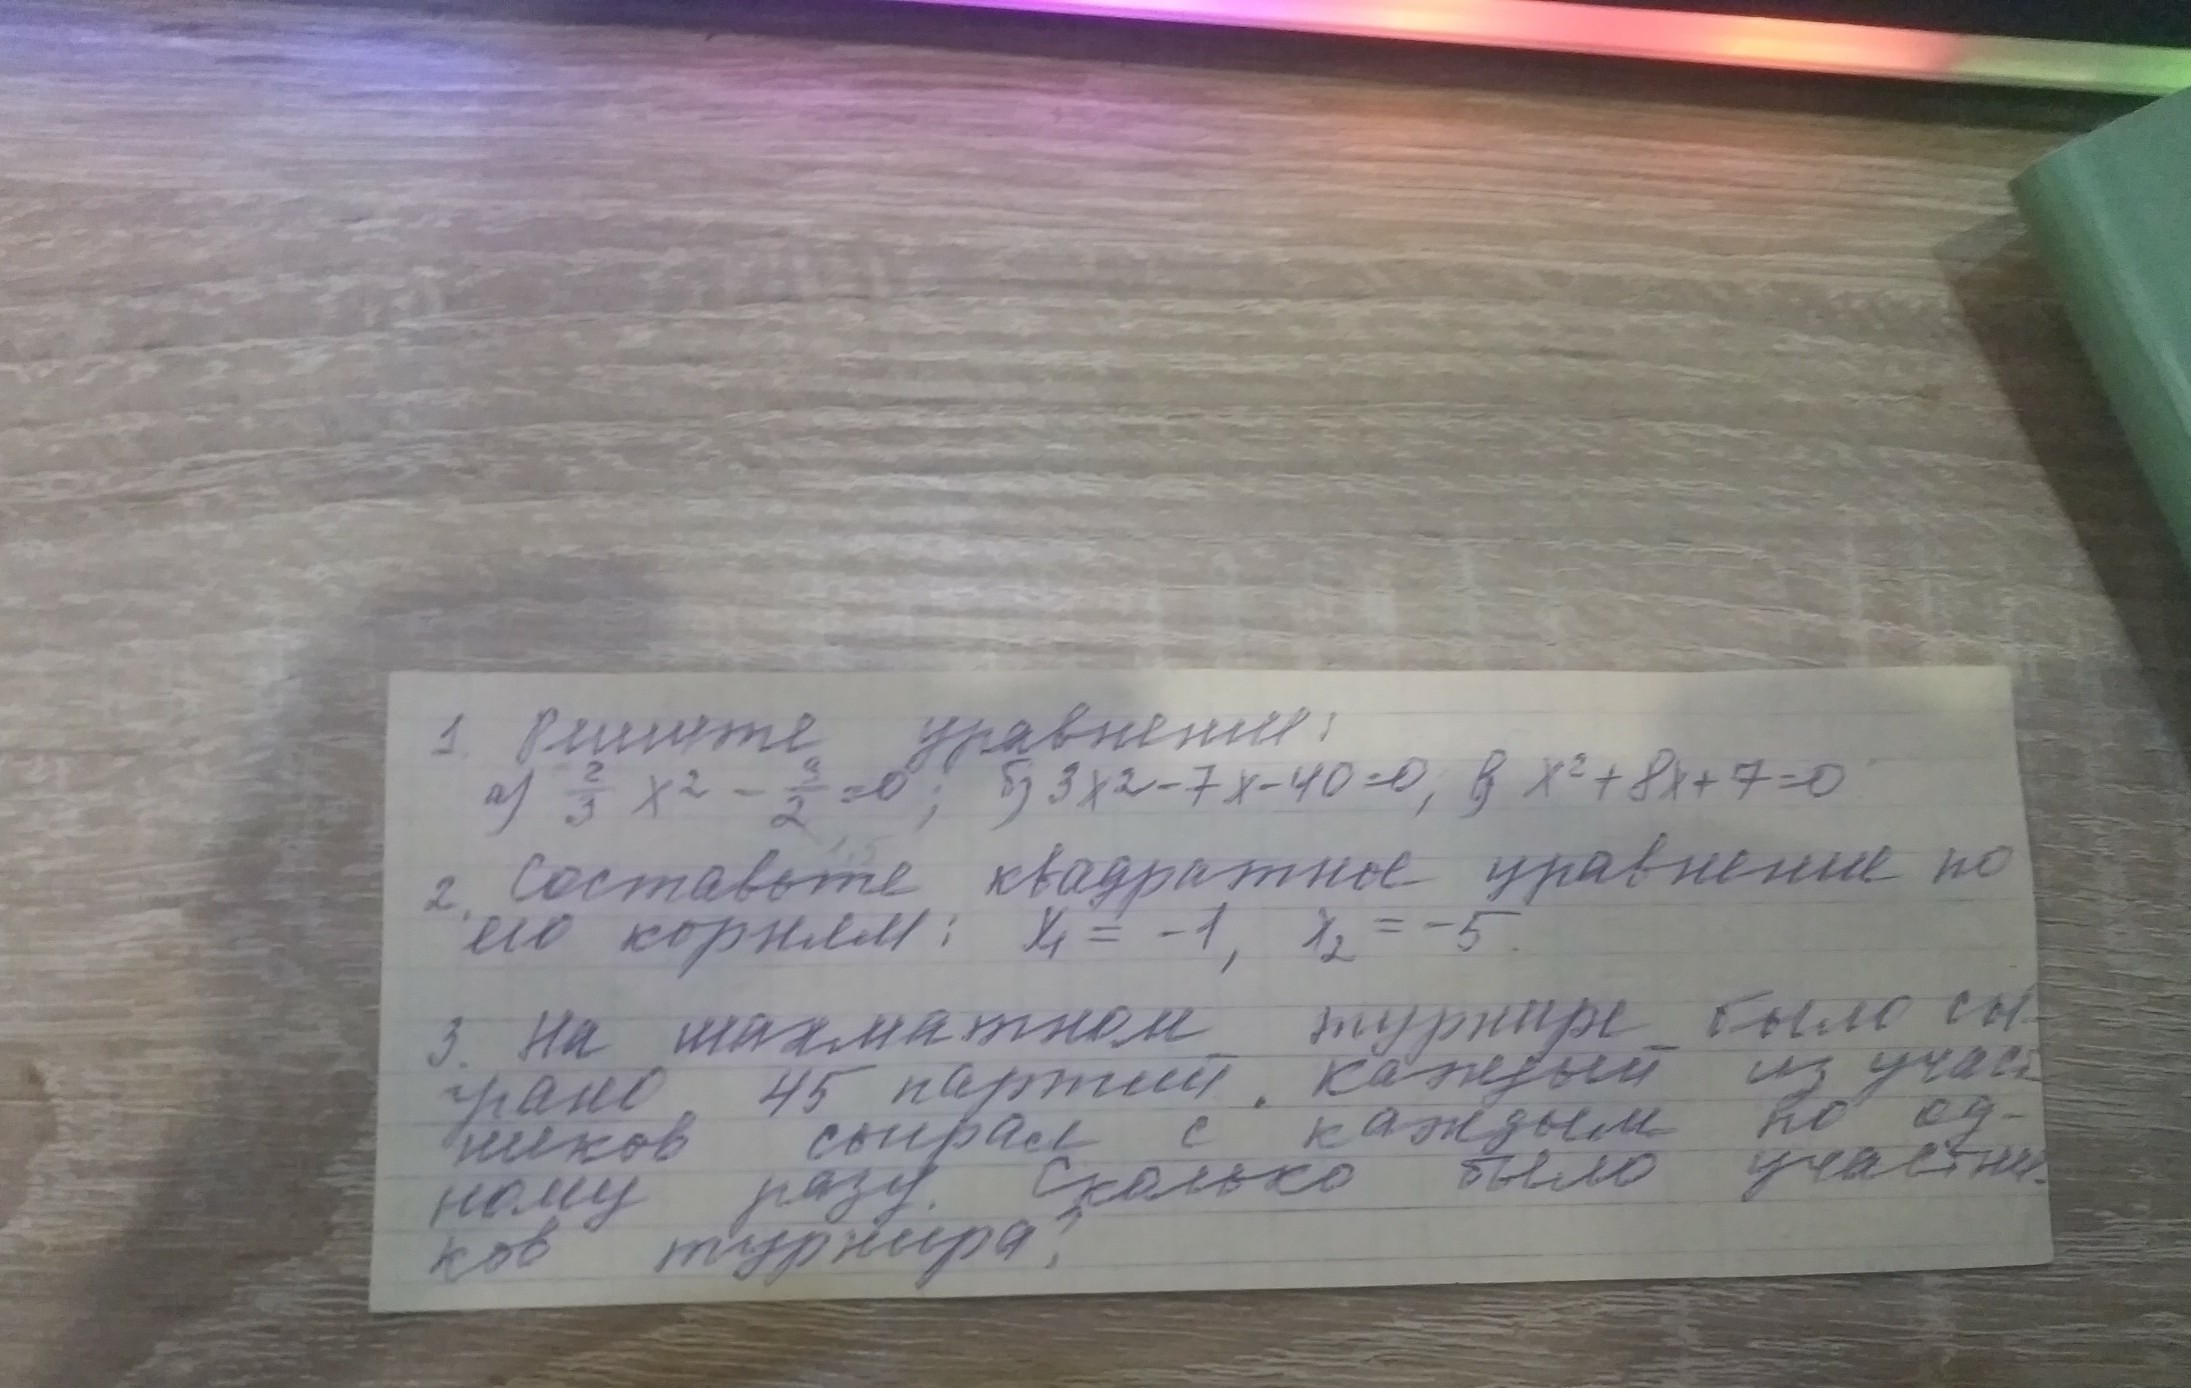 1. Решите уравнения:
а) 2/3 x² - 3/2 = 0; б) 3x2-7x-40=0; в) x²+8x+7=0
2. Составьте квадратное уравнение по
его корням: x₁ = -1, x₂ = -5.
3. На шахматном турнире было сы-
грано 45 партий. Каждый из участ
ников сыграл с каждым по од-
ному разу. Сколько было участни-
ков турнира?